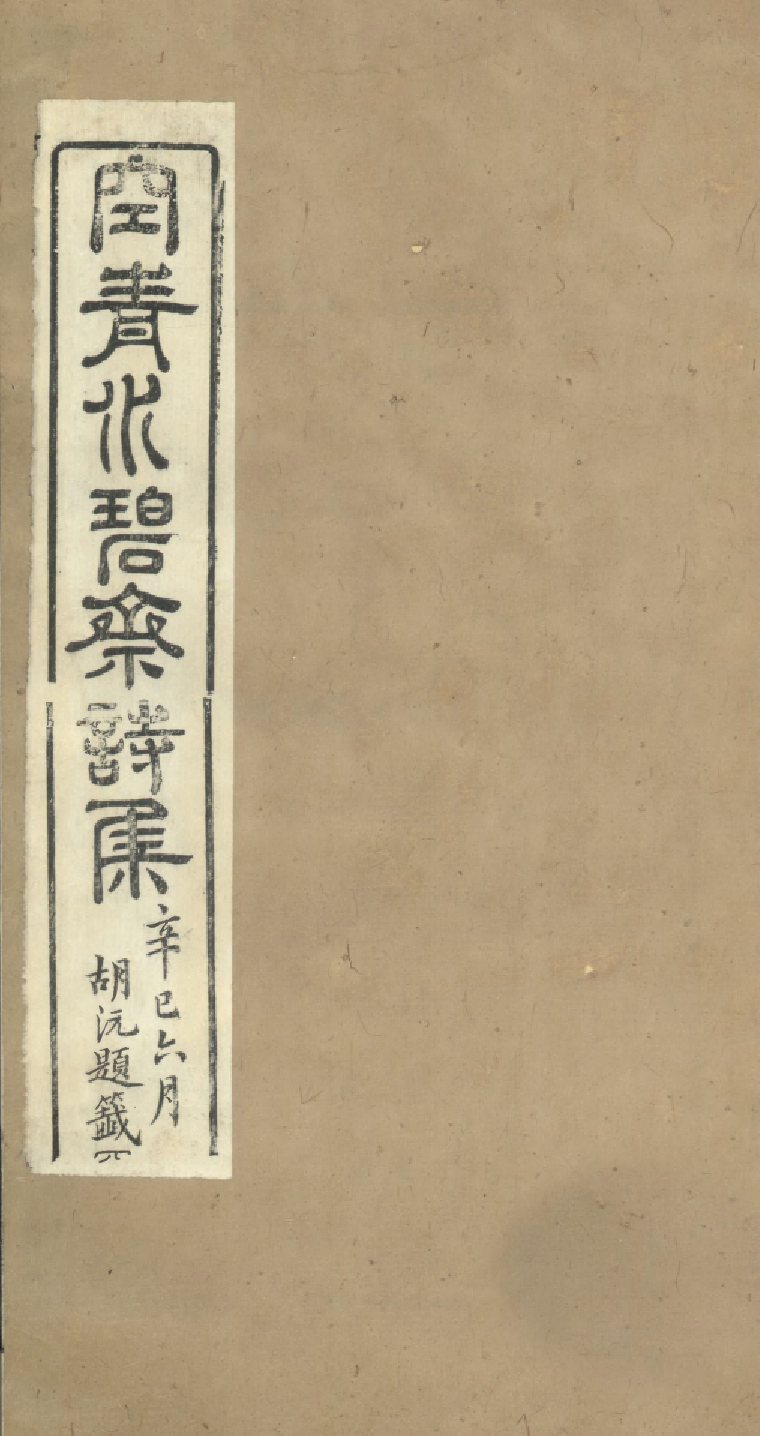 空青水碧齋詩集
辛巳六月
胡沅題籤